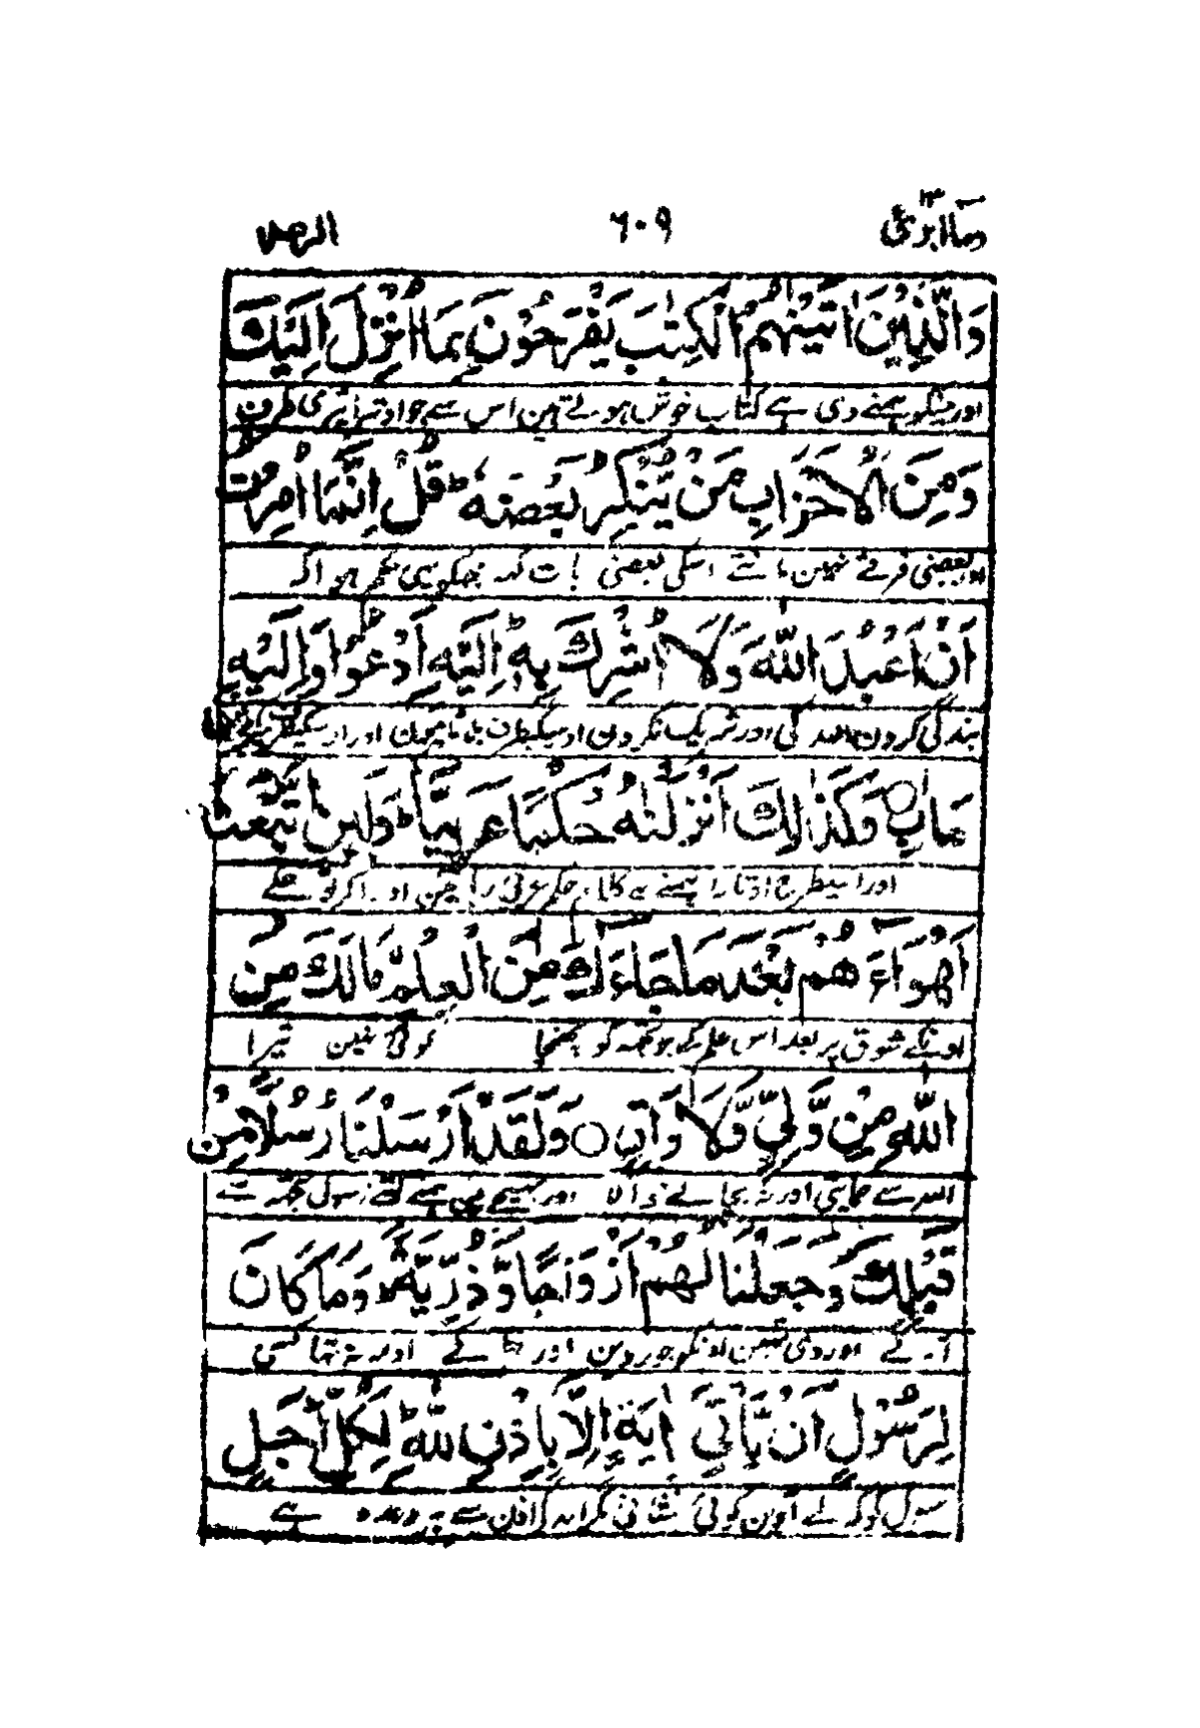 وما ابرئ ١٣ ٦٠٩ الرعد
وَالَّذِيْنَ اٰتَيْنٰهُمُ الْكِتٰبَ يَفْرَحُوْنَ بِمَا اُنْزِلَ اِلَيْكَ
اور جنکو ہمنے دی ہے کتاب خوش ہوتے ہین اس سے جو اوترا تیری طرف
وَمِنَ الْاَحْزَابِ مَنْ يُّنْكِرُ بَعْضَهٗ ؕ قُلْ اِنَّمَا اُمِرْتُ
اور بعضی فرقے نہین مانتے اسکی بعضی بات کہہ مجھکو یہی حکم ہوا کہ
اَنْ اَعْبُدَ اللّٰهَ وَلَا اُشْرِكَ بِهٖ ؕ اِلَيْهِ اَدْعُوْا وَاِلَيْهِ
بندگی کرون اللہ کی اور شریک نکرون اوسیکیطرف بلاتا ہون اور اوسیکیطرف
مَاٰبِ ○ وَكَذٰلِكَ اَنْزَلْنٰهُ حُكْمًا عَرَبِيًّا ؕ وَلَئِنِ اتَّبَعْتَ
اور اسیطرح اوتارا ہمنے یہ کلام حکم عربی زبان مین اور اگر تو چلے
اَهْوَاۤءَ هُمْ بَعْدَ مَا جَاۤءَكَ مِنَ الْعِلْمِ مَا لَكَ مِنَ
اونکے شوق پر بعد اس علم کے جو تجھہ کو پہنچا کوئی نہین تیرا
اللّٰهِ مِنْ وَّلِيٍّ وَّلَا وَاقٍ ○ وَلَقَدْ اَرْسَلْنَا رُسُلًا مِّنْ
اللہ سے حمایتی اور نہ بچانے والا اور بھیجے ہین ہمنے کتنے رسول تجھہ سے
قَبْلِكَ وَجَعَلْنَا لَهُمْ اَزْوَاجًا وَّذُرِّيَّةً ؕ وَمَا كَانَ
آگے اور دی تھین اونکو جوروین اور لڑکے اور نہ تھا کسی
لِرَسُوْلٍ اَنْ يَّاْتِيَ بِاٰيَةٍ اِلَّا بِاِذْنِ اللّٰهِ ؕ لِكُلِّ اَجَلٍ
رسول کو کہ لے آوین کوئی نشانی مگر اللہ کے اذن سے ہر وعدہ ہے